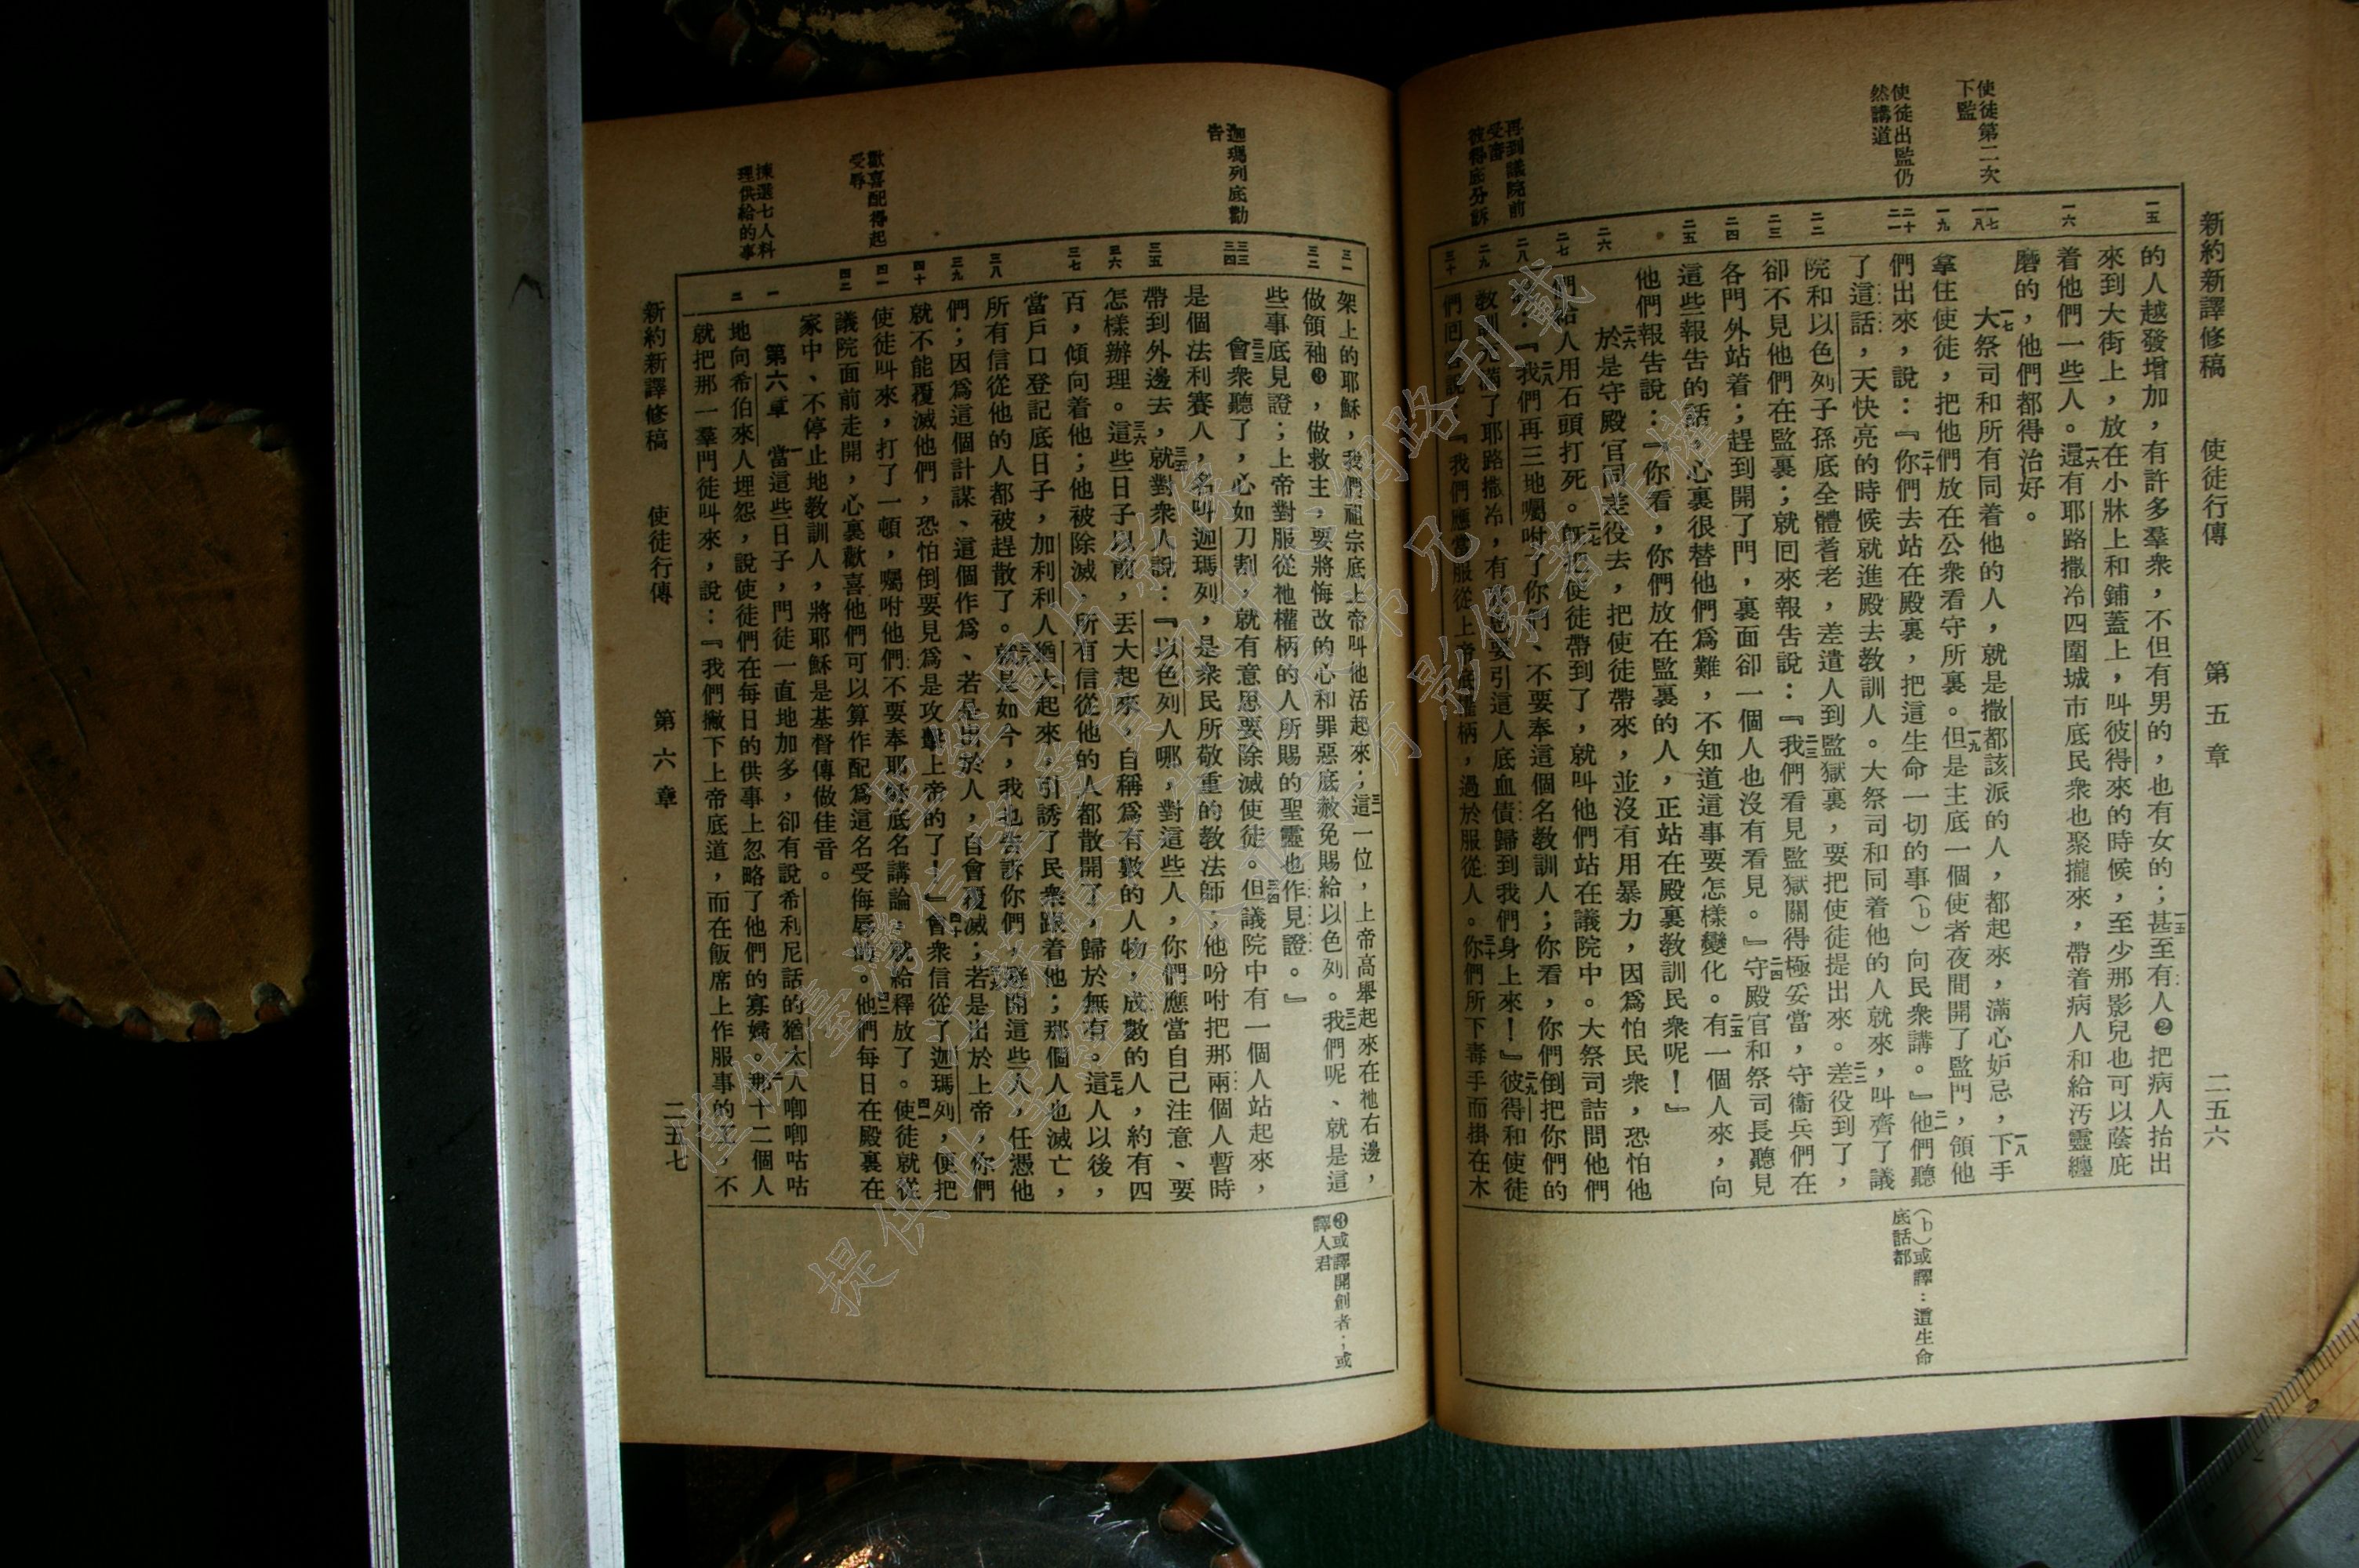 新約新譯修稿　使徒行傳　第五章　二五六
使徒第二次
下監
使徒出監仍
然講道
再到議院前
受審
彼得底分訴
一五
一六
一七
一八
一九
二十
二一
二二
二三
二四
二五
二六
二七
二八
二九
三十
的人越發增加，有許多羣衆，不但有男的，也有女的；一五甚至有人❷把病人抬出
來到大街上，放在小牀上和鋪蓋上，叫彼得來的時候，至少那影兒也可以蔭庇
着他們一些人。一六還有耶路撒冷四圍城市底民衆也聚攏來，帶着病人和給汚靈纏
磨的，他們都得治好。
一七大祭司和所有同着他的人，就是撒都該派的人，都起來，滿心妒忌，一八下手
拿住使徒，把他們放在公衆看守所裏。一九但是主底一個使者夜間開了監門，領他
們出來，說：『二十你們去站在殿裏，把這生命一切的事(b)向民衆講。』二一他們聽
了這話，天快亮的時候就進殿去教訓人。大祭司和同着他的人就來，叫齊了議
院和以色列子孫底全體耆老，差遣人到監獄裏，要把使徒提出來。二二差役到了，
卻不見他們在監裏；就囘來報告說：『二三我們看見監獄關得極妥當，守衞兵們在
各門外站着；趕到開了門，裏面卻一個人也沒有看見。』二四守殿官和祭司長聽見
這些報告的話，心裏很替他們爲難，不知道這事要怎樣變化。二五有一個人來，向
他們報告說：『你看，你們放在監裏的人，正站在殿裏教訓民衆呢！』
二六於是守殿官同差役去，把使徒帶來，並沒有用暴力，因爲怕民衆，恐怕他
們給人用石頭打死。二七旣把使徒帶到了，就叫他們站在議院中。大祭司詰問他們
：『二八我們再三地囑咐了你們、不要奉這個名教訓人；你看，你們倒把你們的
教訓滿了耶路撒冷，有要引這人底血債歸到我們身上來！』二九彼得和使徒
們囘說：『我們應當服從上帝權柄，過於服從人。三十你們所下毒手而掛在木
(b)或譯：這生命
底話都
迦瑪列底勸
告
歡喜配得起
受辱
揀選七人料
理供給的事
三一
三二
三三
三四
三五
三六
三七
三八
三九
四十
四一
四二
一
二
架上的耶穌，我們祖宗底上帝叫他活起來；三一這一位，上帝高舉起來在祂右邊，
做領袖❸，做救主，要將悔改的心和罪惡底赦免賜給以色列。三二我們呢、就是這
些事底見證；上帝對服從祂權柄的人所賜的聖靈也作見證。』
三三會衆聽了，心如刀割，就有意思要除滅使徒。三四但議院中有一個人站起來，
是個法利賽人，名叫迦瑪列，是衆民所敬重的教法師；他吩咐把那兩個人暫時
帶到外邊去，三五就對衆人說：『以色列人哪，對這些人，你們應當自己注意、要
怎樣辦理。三六這些日子以前，丟大起來，自稱爲有數的人物，成數的人，約有四
百，傾向着他；他被除滅，所有信從他的人都散開了，歸於無有。三七這人以後，
當戶口登記底日子，加利利人猶大起來，引誘了民衆跟着他；那個人也滅亡，
所有信從他的人都被趕散了。三八就是如今，我也告訴你們，避開這些人，任憑他
們；因爲這個計謀、這個作爲、若是出於人，自會覆滅；三九若是出於上帝，你們
就不能覆滅他們，恐怕倒要見爲是攻擊上帝的了！』四十會衆信從了迦瑪列，便把
使徒叫來，打了一頓，囑咐他們不要奉耶穌底名講論，就給釋放了。四一使徒就從
議院面前走開，心裏歡喜他們可以算作配爲這名受侮辱的。四二他們每日在殿裏在
家中、不停止地教訓人，將耶穌是基督傳做佳音。
第六章　一當這些日子，門徒一直地加多，卻有說希利尼話的猶太人唧唧咕咕
地向希伯來人埋怨，說使徒們在每日的供事上忽略了他們的寡婦。二那十二個人
就把那一羣門徒叫來，說：『我們撇下上帝底道，而在飯席上作服事的工，不
❸或譯開創者；或
譯人君
新約新譯修稿　使徒行傳　第六章　二五七